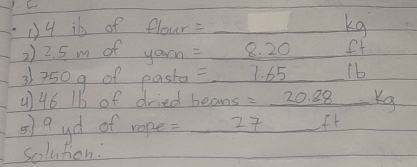 1) 4 ib of flour = ______ kg
2) 2.5 m of yarn = 8.20 ft
3) 750 g of pasta = 1.65 lb
4) 46 lb of dried beans = 20.88 kg
5) 9 yd of rope = 27 ft
Solution: